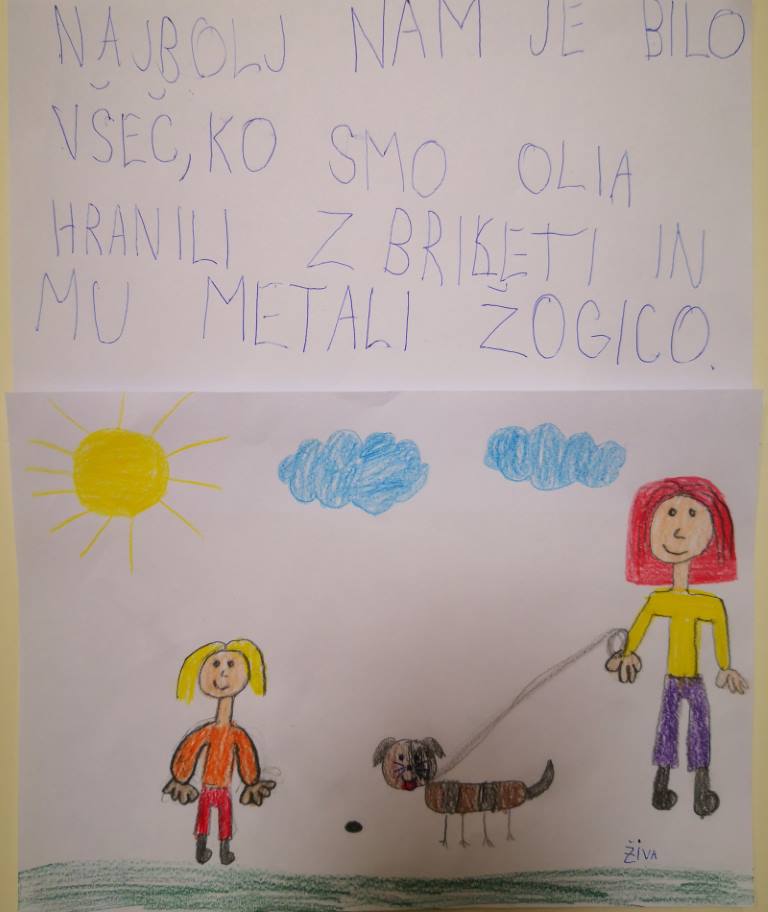 NAJBOLJ NAM JE BILO
VŠEČ, KO SMO OLIA
HRANILI Z BRIKETI IN
MU METALI ŽOGICO.
ŽIVA